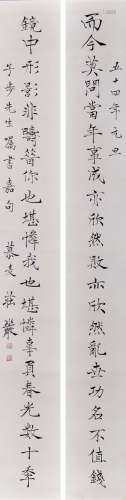 五十四年元旦
而今莫問當年事成亦欣然敗亦欣然亂世功名不值錢
鏡中形影非疇昔你也堪憐我也堪憐辜負春光數十年
子步先生屬書嘉句
慕陵 莊嚴